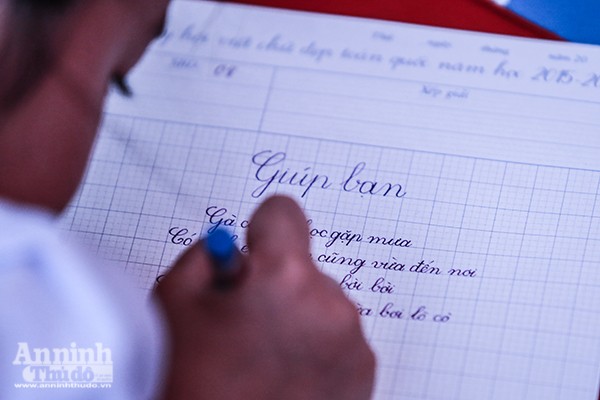 hội viết chữ đẹp toàn quốc năm học 2015-20
ngày tháng năm 20
08
Xếp giải
Giúp bạn
Gà học gặp mưa
Có cũng vừa đến nơi
bời bời
bơi lô cô
An ninh
Thủ đô
www.anninhthudo.vn